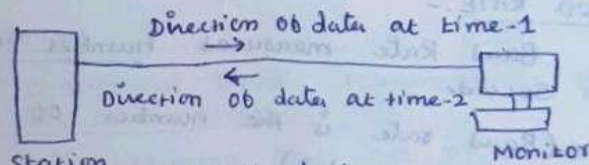 Direction ob data at time-1
Direction ob data at time-2
Station
Monitor